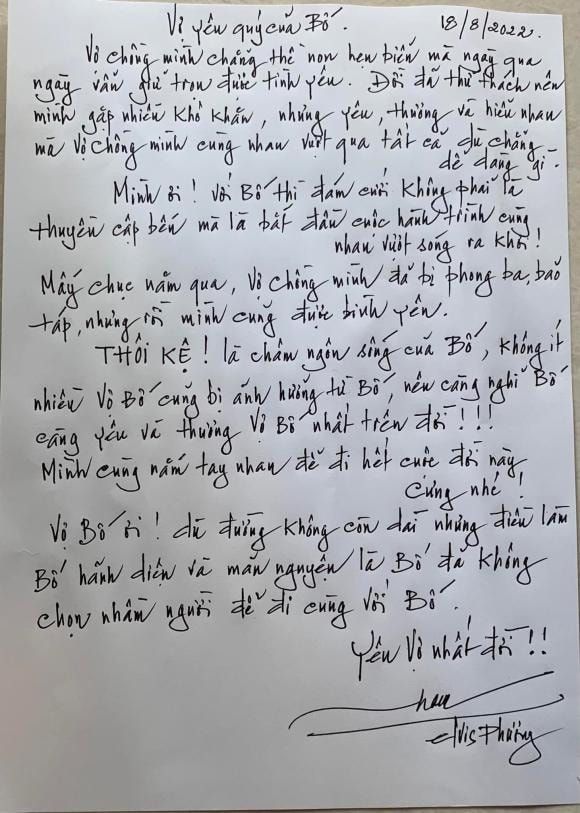 Vợ yêu quý của Bố.
18/8/2022.
Vợ chồng mình chẳng thề non hẹn biển mà ngày qua
ngày vẫn giữ trọn được tình yêu. Đời đã thử thách nên
mình gặp nhiều khó khăn, nhưng yêu, thương và hiểu nhau
mà vợ chồng mình cùng nhau vượt qua tất cả dù chẳng
dễ dàng gì.
Mình ơi! Với Bố thì đám cưới không phải là
thuyền cập bến mà là bắt đầu cuộc hành trình cùng
nhau vượt sóng ra khơi!
Mấy chục năm qua, vợ chồng mình đã bị phong ba, bão
táp, nhưng rồi mình cũng được bình yên.
THÔI KỆ! là châm ngôn sống của Bố, không ít
nhiều Vợ Bố cũng bị ảnh hưởng từ Bố, nên càng nghĩ Bố
càng yêu và thương Vợ Bố nhất trên đời!!!
Mình cùng nắm tay nhau để đi hết cuộc đời này
cưng nhé!
Vợ Bố ơi! dù đường không còn dài nhưng điều làm
Bố hãnh diện và mãn nguyện là Bố đã không
chọn nhầm người để đi cùng với Bố.
Yêu Vợ nhất đời!!
Elvis Phương